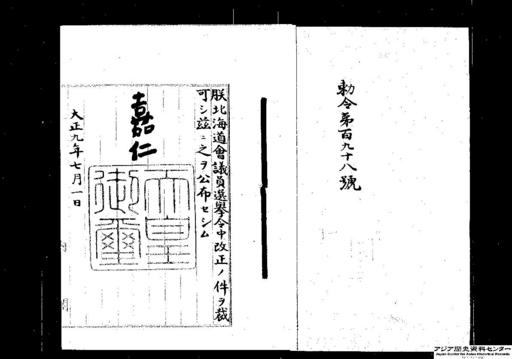 勅令第百九十八號
朕北海道會議員選擧令中改正ノ件ヲ裁
可シ茲ニ之ヲ公布セシム
嘉仁
天皇御璽
大正九年七月一日
アジア歴史資料センター
Japan Center for Asian Historical Records